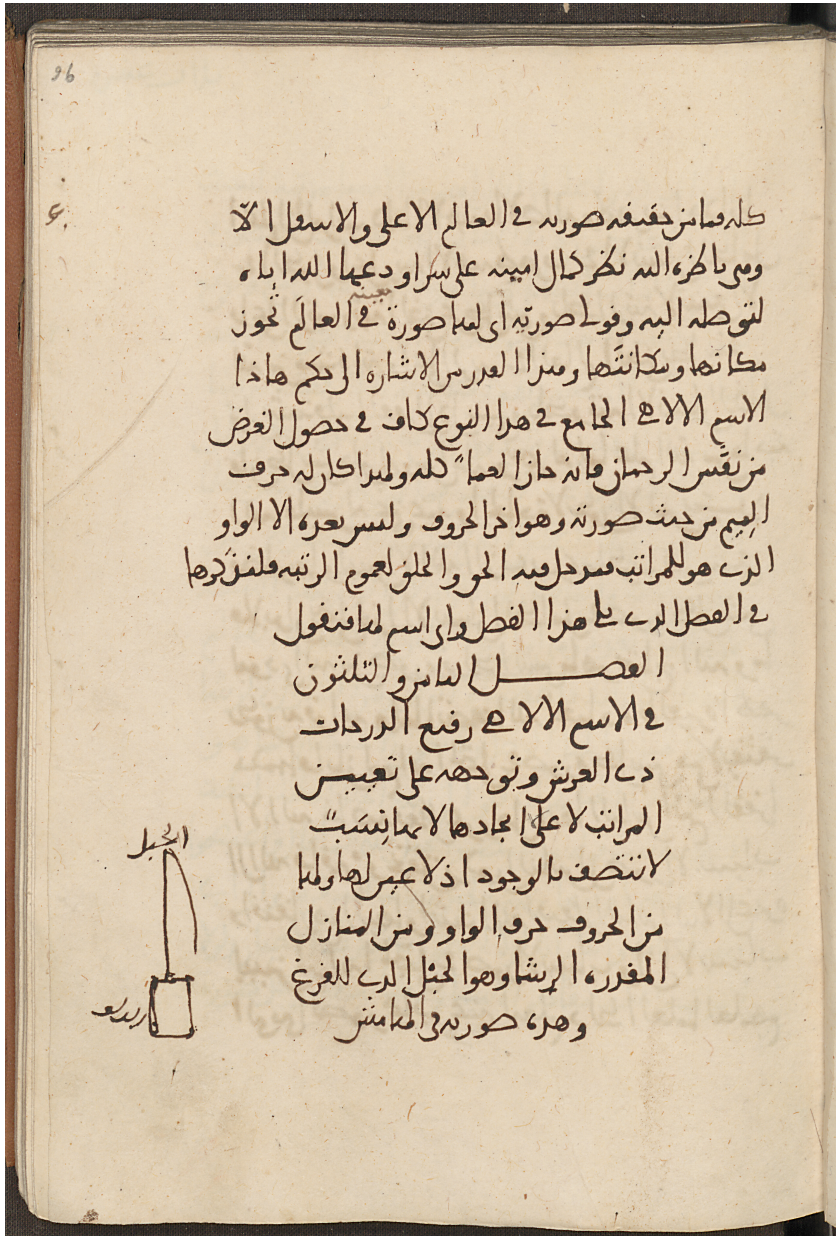 96
كله فما من حقيقة صورية في العالم الاعلى والاسفل الا
وهي ناظرة اليه نظر كمال امينة على سر اودعها الله اياه
لتوصله اليه وقولي صورية اي لها صورة معينة في العالم تحوز
مكانها ومكانتها وهذا القدر من الاشارة الى حكم هاذا
الاسم الالاهي الجامع في هذا النوع كاف في حصول الغرض
من نفس الرحمان فانه حاز العماء كله ولهذا كان له حرف
الميم من حيث صورته وهو اخر الحروف وليس بعده الا الواو
الذي هو للمراتب فيدخل فيه الحق والخلق لعموم الرتبة فلنذكرها
في الفصل الذي يلي هذا الفصل واي اسم لها فنقول
الفصل الثامن والثلثون
في الاسم الالاهي رفيع الدرجات
ذي العرش وتوجهه على تعيين
المراتب لا على ايجادها لانها نسب
لا تتصف بالوجود اذ لا عين لها ولها
من الحروف حرف الواو ومن المنازل
المقدرة الرشا وهو الحبل الذي للفرغ
وهذه صورته في الهامش
الحبل